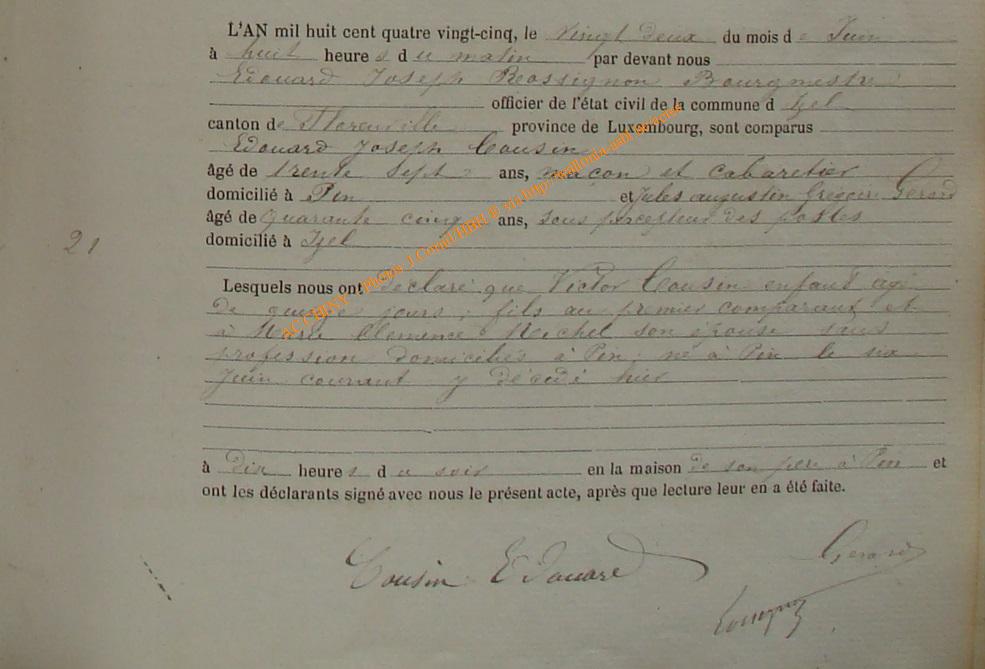 L'AN mil huit cent quatre vingt-cinq, le vingt deux du mois de Juin
à huit heures du matin par devant nous
Edouard Joseph Rossignon Bourgmestre
officier de l'état civil de la commune d Izel
canton de Florenville province de Luxembourg, sont comparus
Edouard Joseph Cousin
âgé de trente sept ans, maçon et cabaretier
domicilié à Pin et Jules augustin Gerard
âgé de quarante cinq ans, sous percepteur des postes
domicilié à Izel
21
Lesquels nous ont déclaré que Victor Cousin enfant agé
de quinze jours, fils du premier comparant et
à Marie Clemence Michel son épouse sans
profession domiciliés à Pin; né à Pin le six
Juin courant y décédé hier
à dix heures du soir en la maison de son père à Pin et
ont les déclarants signé avec nous le présent acte, après que lecture leur en a été faite.
Cousin Edouard
Gerard
ACCHINY - Photos J.Collin/HBH @ via http://wallonia-asbl